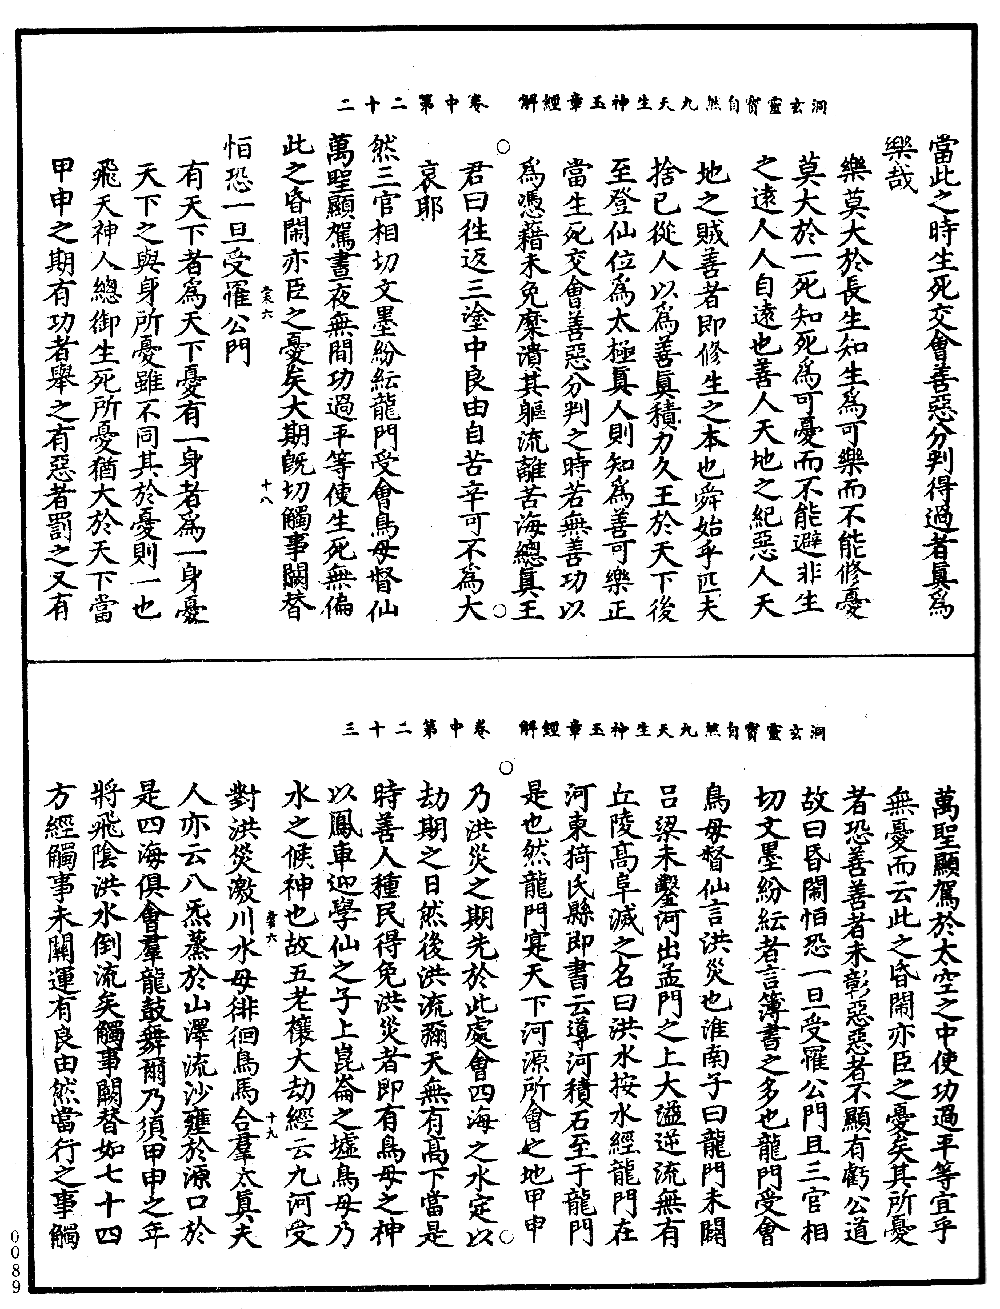 洞玄靈寶自然九天生神玉章經解 卷中第二十二
當此之時生死交會善惡分判得過者眞爲
樂哉
樂莫大於長生知生爲可樂而不能修憂
莫大於一死知死爲可憂而不能避非生
之遠人人自遠也善人天地之紀惡人天
地之賊善者即修生之本也舜始乎匹夫
捨已從人以爲善眞積力久王於天下後
至登仙位爲太極眞人則知爲善可樂正
當生死交會善惡分判之時若無善功以
爲憑藉未免糜潰其軀流離苦海總眞王
君曰徃返三塗中良由自苦辛可不爲大
哀耶
然三官相切文墨紛紜龍門受會鳥母督仙
萬聖顯駕晝夜無間功過平等使生死無偏
此之昏鬧亦臣之憂矣大期旣切觸事闕替
怕恐一旦受罹公門
有天下者爲天下憂有一身者爲一身憂
天下之與身所憂雖不同其於憂則一也
飛天神人總御生死所憂猶大於天下當
甲申之期有功者舉之有惡者罰之又有
十八
洞玄靈寶自然九天生神玉章經解 卷中第二十三
萬聖顯駕於太空之中使功過平等宜乎
無憂而云此之昏鬧亦臣之憂矣其所憂
者恐善善者未彰惡惡者不顯有虧公道
故曰昏鬧怕恐一旦受罹公門且三官相
切文墨紛紜者言簿書之多也龍門受會
鳥母督仙言洪災也淮南子曰龍門未闢
呂梁未鑿河出孟門之上大溢逆流無有
丘陵高阜滅之名曰洪水按水經龍門在
河東猗氏縣即書云導河積石至于龍門
是也然龍門寔天下河源所會之地甲申
乃洪災之期先於此處會四海之水定以
劫期之日然後洪流彌天無有高下當是
時善人種民得免洪災者即有鳥母之神
以鳳車迎學仙之子上崑崙之墟鳥母乃
水之候神也故五老禳大劫經云九河受
對洪災激川水母徘徊鳥馬合羣太眞夫
人亦云八炁蒸於山澤流沙壅於源口於
是四海俱會羣龍鼓舞爾乃須甲申之年
將飛陰洪水倒流矣觸事闕替如七十四
方經觸事未關運有良由然當行之事觸
十九
0089